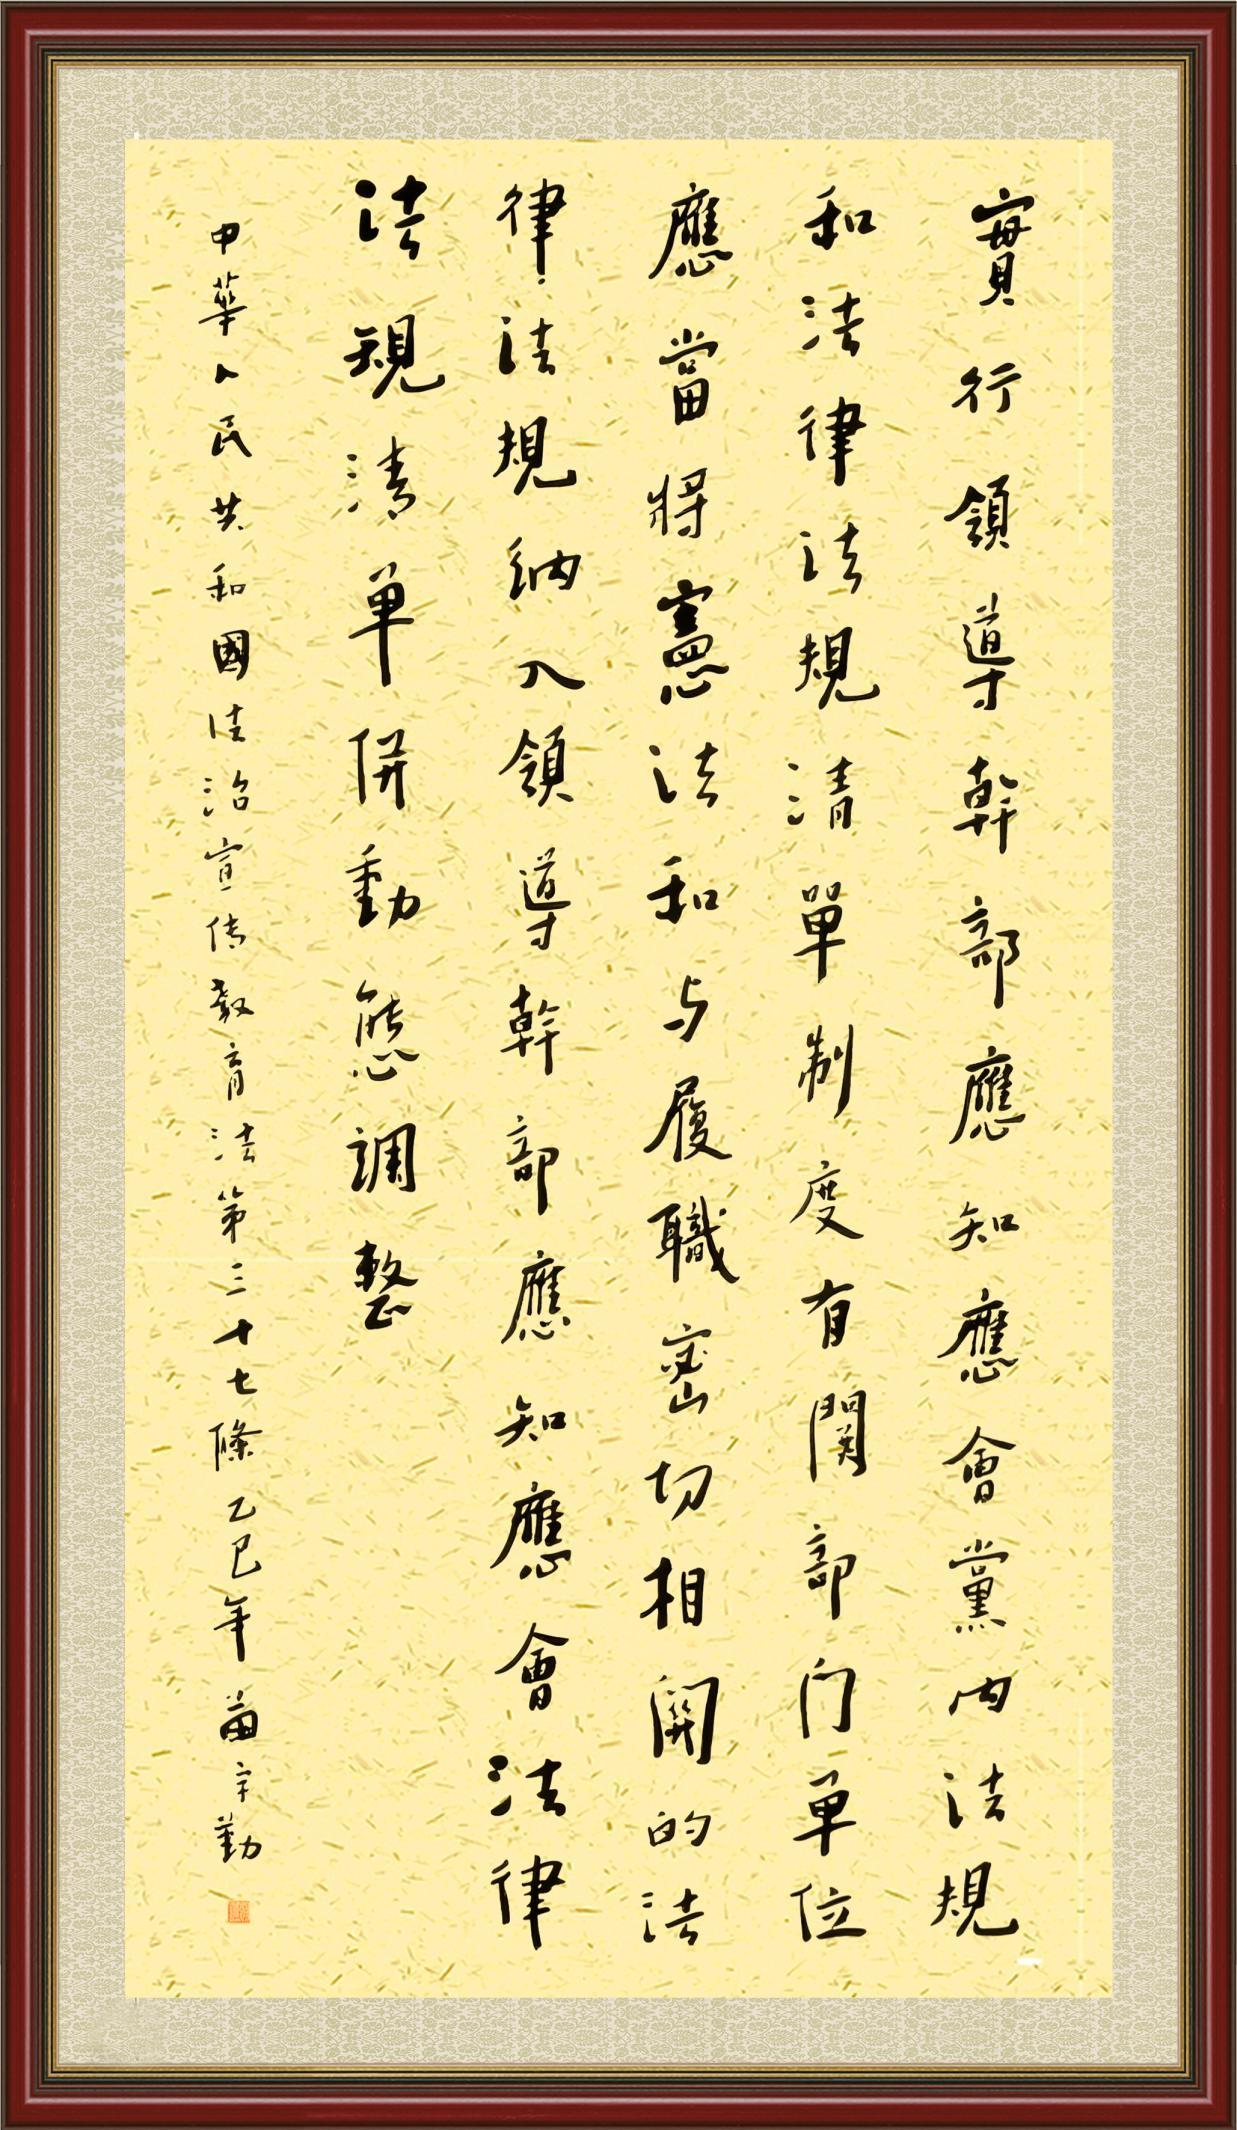 實行領導幹部應知應會黨内法規
和法律法規清單制度有関部门单位
應當將憲法和与履職密切相關的法
律法規納入領導幹部應知應會法律
法規清单併動態調整
中華人民共和國法治宣传教育法第三十七條乙巳年苗宇勤